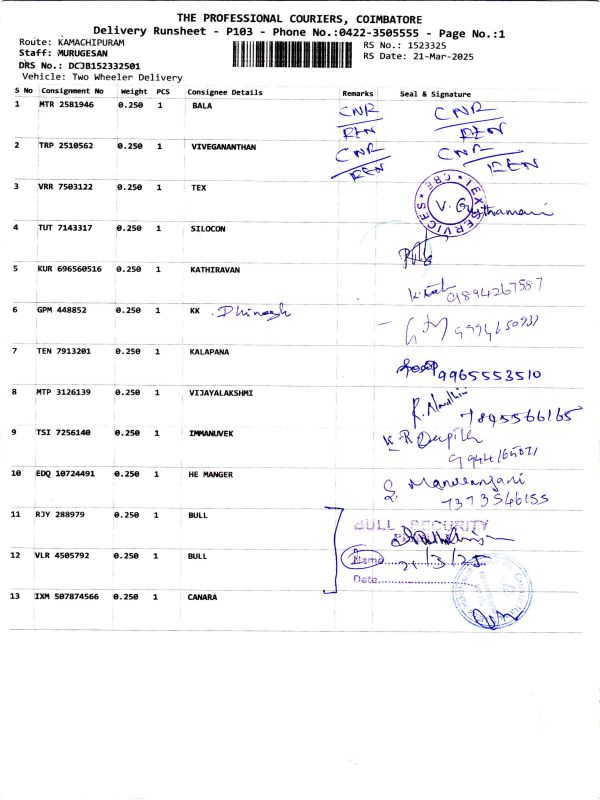 THE PROFESSIONAL COURIERS, COIMBATORE
Delivery Runsheet - P103 - Phone No.:0422-3505555 - Page No.:1
Route: KAMACHIPURAM
RS No.: 1523325
Staff: MURUGESAN
RS Date: 21-Mar-2025
DRS No.: DCJB152332501
Vehicle: Two Wheeler Delivery
S No Consignment No Weight PCS Consignee Details Remarks Seal & Signature
1 MTR 2581946 0.250 1 BALA CNR CNR
2 TRP 2510562 0.250 1 VIVEGANANTHAN CNR CNR
3 VRR 7503122 0.250 1 TEX TEX SERVICES CBE V.
4 TUT 7143317 0.250 1 SILOCON
5 KUR 696560516 0.250 1 KATHIRAVAN 9894267587
6 GPM 448852 0.250 1 KK
7 TEN 7913201 0.250 1 KALAPANA 9965553510
8 MTP 3126139 0.250 1 VIJAYALAKSHMI 7895566165
9 TSI 7256140 0.250 1 IMMANUVEK
10 EDQ 10724491 0.250 1 HE MANGER 7373546155
11 RJY 288979 0.250 1 BULL BULL SECURITY
12 VLR 4505792 0.250 1 BULL Name 21/3/25
Date
13 IXM 507874566 0.250 1 CANARA